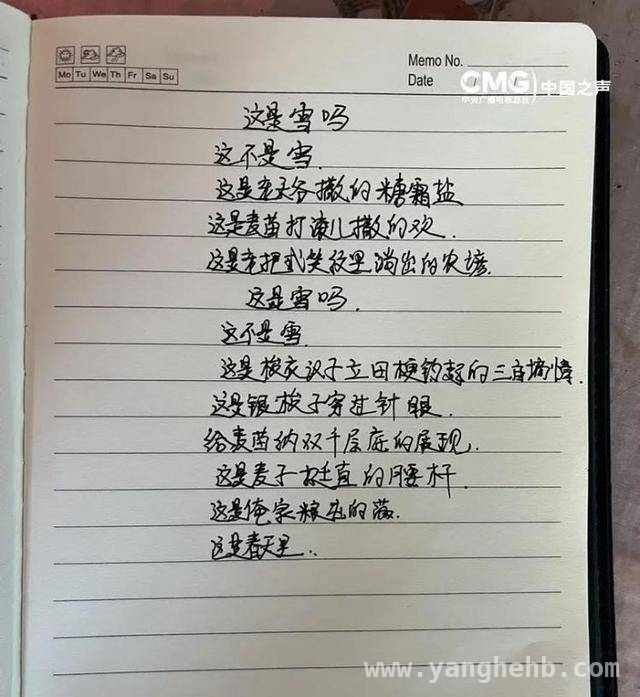 Memo No.
Mo Tu We Th Fr Sa Su
Date / /
CMG 中国之声
中央广播电视总台
这是雪吗
这不是雪.
这是老天爷撒的糖霜盐
这是麦苗打滚儿撒的欢.
这是老把式笑纹里淌出的农谚.
这是雪吗.
这不是雪.
这是梭衣汉子立田梗钓起的三亩墒情.
这是银梭子穿过针眼.
给麦苗纳双千层底的展现.
这是麦子挺直的腰杆.
这是俺家粮仓的
这是春天里..
www.yanghehb.com